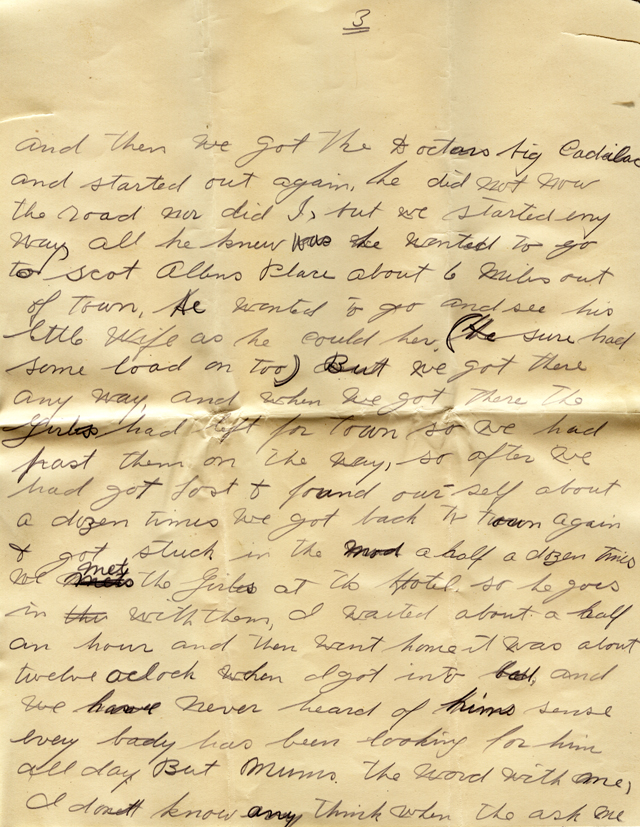 3
and then we got the Doctors big Cadilac
and started out again, he did not now
the road nor did I, but we started eny
way all he knew was he wanted to go
to Scot Allens Place about 6 Miles out
of Town, He wanted to go and see his
little Wife as he could her (He sure had
some load on too) But we got there
any way and when we got there the
Girls had left for Town so we had
past them on the way, so after we
had got lost & found our self about
a dozen times we got back to town again
& got stuck in the mod a half a dozen times
we mets met the Girls at the Hotel. so he goes
in the with them, I waited about a half
an hour and then went home it was about
twelve oclock when I got into bed, and
we have never heard of hims sense
every body has been looking for him
all day But Mums. The word with me,
I dontt know any think when the ask me